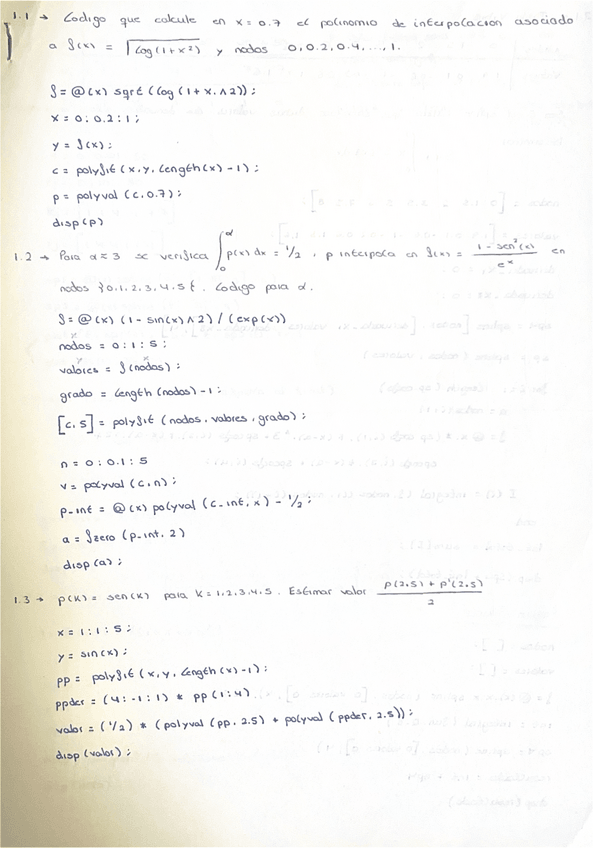 1.1 → Codigo que calcule en x = 0.7 el polinomio de interpolacion asociado
a f(x) = √log(1+x²) y nodos 0, 0.2, 0.4, ..., 1.
f = @(x) sqrt(log(1+x.^2));
x = 0:0.2:1;
y = f(x);
c = polyfit(x,y,length(x)-1);
p = polyval(c,0.7);
disp(p)
1.2 → Para α ≈ 3 se verifica ∫₀^α p(x) dx = 1/2, p interpola en f(x) = (1 - sen²(x))/eˣ en
nodos {0,1,2,3,4,5}. Codigo para α.
f = @(x) (1 - sin(x)^2)/(exp(x))
nodos = 0:1:5;
valores = f(nodos);
grado = length(nodos)-1;
[c,S] = polyfit(nodos,valores,grado);
n = 0:0.1:5
v = polyval(c,n);
p-int = @(x) polyval(c-int,x) - 1/2;
a = fzero(p-int,2)
disp(a);
1.3 → p(k) = sen(k) para k = 1,2,3,4,5. Estimar valor (p(2.5) + p'(2.5))/2
x = 1:1:5;
y = sin(x);
pp = polyfit(x,y,length(x)-1);
ppder = (4:-1:1) * pp(1:4);
valor = (1/2) * (polyval(pp,2.5) + polyval(ppder,2.5));
disp(valor);